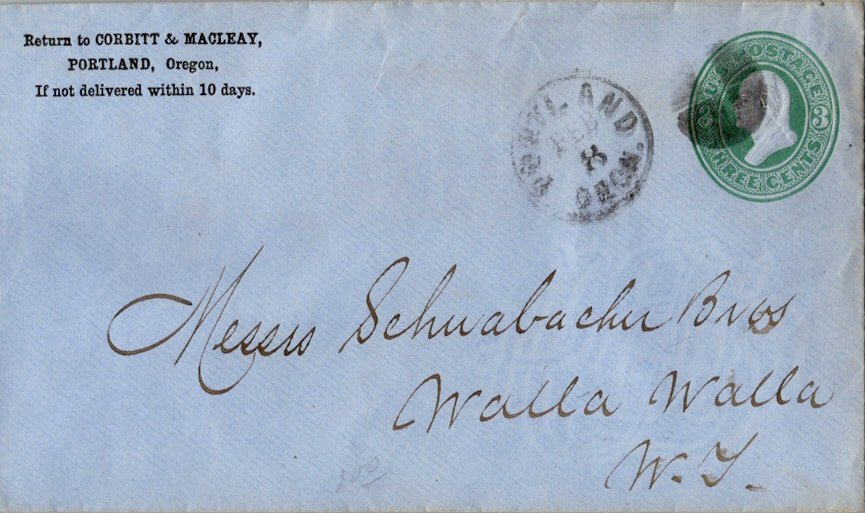 Return to CORBITT & MACLEAY,
PORTLAND, Oregon,
If not delivered within 10 days.
PORTLAND OREGN.
FEB
U.S. POSTAGE
3
THREE CENTS
Messrs Schwabacher Bros
Walla Walla
W.T.
100